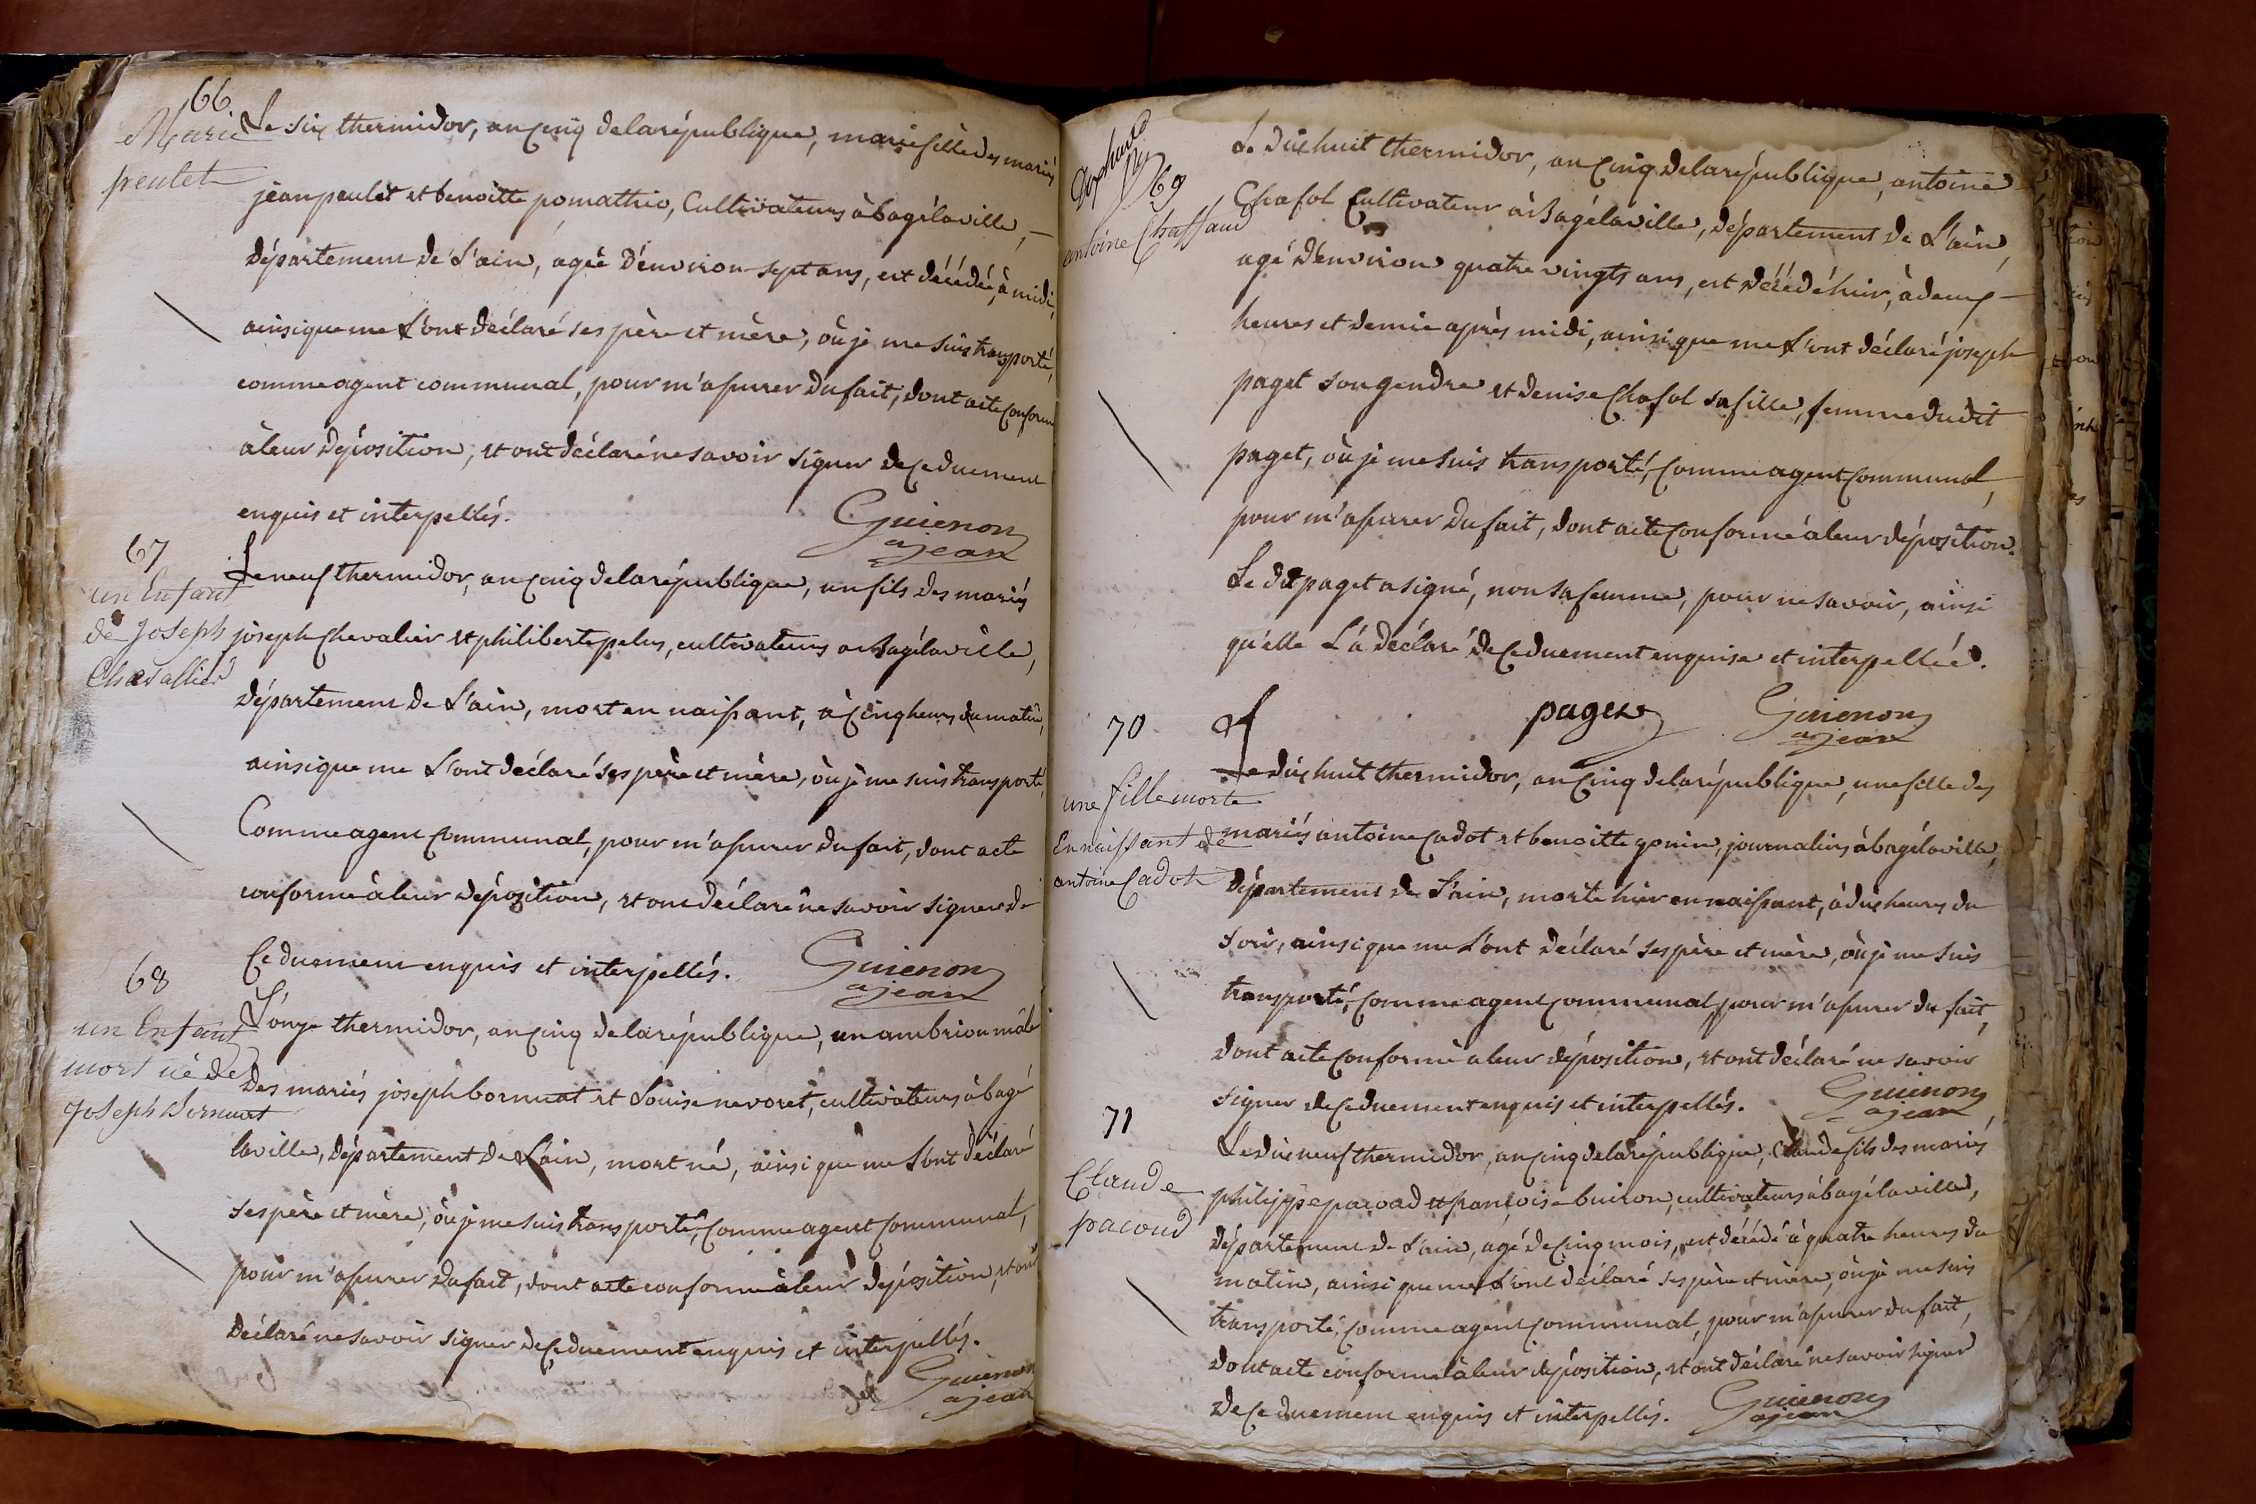 66
Marie
peulet
Le six thermidor, an cinq de la république, marie fille des mariés
jean peulet et benoitte pomathio, Cultivateurs à bagé la ville,
département de L'ain, agée d'environ sept ans, est décédée, à midi,
ainsi que me L'ont déclaré ses père et mère, où je me suis transporté,
comme agent communal, pour m'assurer du fait, dont acte conforme
à leur déposition, et ont déclaré ne savoir signer de ce duement
enquis et interpellés.
Guienon
ajean
67
un Enfant
de Joseph
Chevallier
Le neuf thermidor, an cinq de la république, un fils des mariés
joseph Chevalier et philiberte pelus, cultivateurs a Bagé la ville,
département de L'ain, mort en naissant, à cinq heures du matin,
ainsi que me L'ont déclaré ses père et mère, où je me suis transporté,
Comme agent communal, pour m'assurer du fait, dont acte
conforme à leur déposition, et ont déclaré ne savoir signer de
Ce duement enquis et interpellés.
Guienon
ajean
68
un Enfant
mort né de
Joseph Bornuat
L'onze thermidor, an cinq de la république, un ambrion mâle
Des mariés joseph bornuat et Louise nevoret, cultivateurs à bagé
la ville, département de L'ain, mort né, ainsi que me L'ont déclaré
ses père et mère, où je me suis transporté, comme agent communal,
pour m'assurer du fait, dont acte conforme à leur déposition, et ont
Déclaré ne savoir signer de ce duement enquis et interpellés.
Guienon
ajean
69
antoine Chaffaud
Le dix huit thermidor, an cinq de la république, antoine
Chafol Cultivateur à Bagé la ville, département de L'ain,
agé d'environ quatre vingts ans, est décédé hier, à deux
heures et demie après midi, ainsi que me L'ont déclaré joseph
paget son gendre et denise Chafol sa fille, femme dudit
paget, où je me suis transporté, comme agent communal,
pour m'assurer du fait, dont acte conforme à leur déposition.
Le dit paget a signé, non sa femme, pour ne savoir, ainsi
qu'elle L'a déclaré de ce duement enquise et interpellée.
paget
Guienon
ajean
70
une fille morte
En naissant de
antoine Cadot
Le dix huit thermidor, an cinq de la république, une fille des
mariés antoine Cadot et benoitte gonin, journaliers à bagé la ville,
département de L'ain, morte hier en naissant, à dix heures du
soir, ainsi que me L'ont déclaré ses père et mère, où je me suis
transporté, comme agent communal, pour m'assurer du fait,
dont acte conforme a leur déposition, et ont déclaré ne savoir
signer de ce duement enquis et interpellés.
Guienon
ajean
71
Claude
pacoud
Le dix neuf thermidor, an cinq de la république, Claude fils des mariés
philippe pacoud et françoise buiron, cultivateurs à bagé la ville,
département de L'ain, agé de cinq mois, est décédé à quatre heures du
matin, ainsi que me L'ont déclaré ses père et mère, où je me suis
transporté, comme agent communal, pour m'assurer du fait,
dont acte conforme à leur déposition, et ont déclaré ne savoir signer
de ce duement enquis et interpellés.
Guienon
ajean